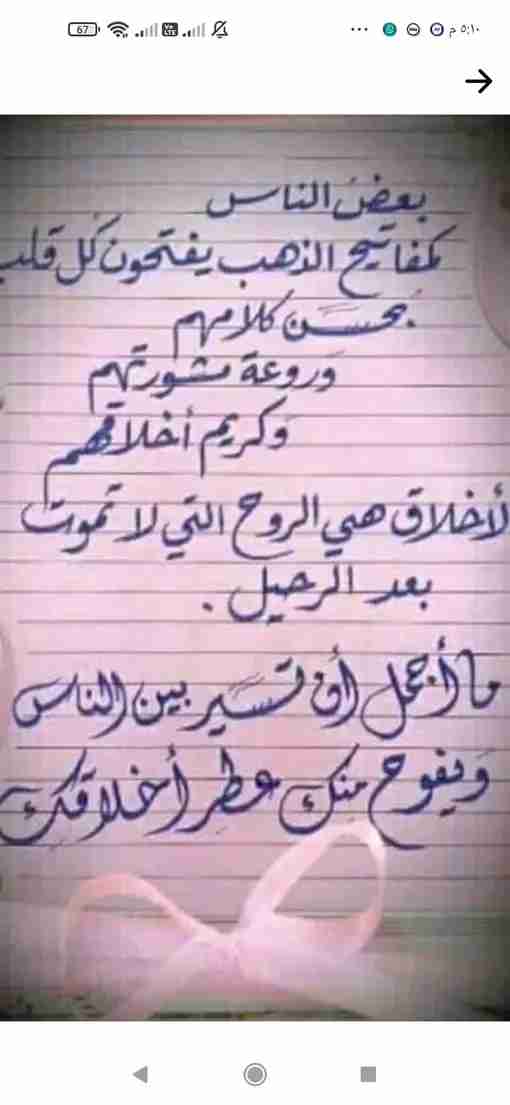 ٥:١٠ م
67
بعض الناس
كمفاتيح الذهب يفتحون كل قلب
بحسن كلامهم
وروعة مشورتهم
وكريم أخلاقهم
لأخلاق هي الروح التي لا تموت
بعد الرحيل .
ما أجمل أن تسير بين الناس
ويفوح منك عطر أخلاقك